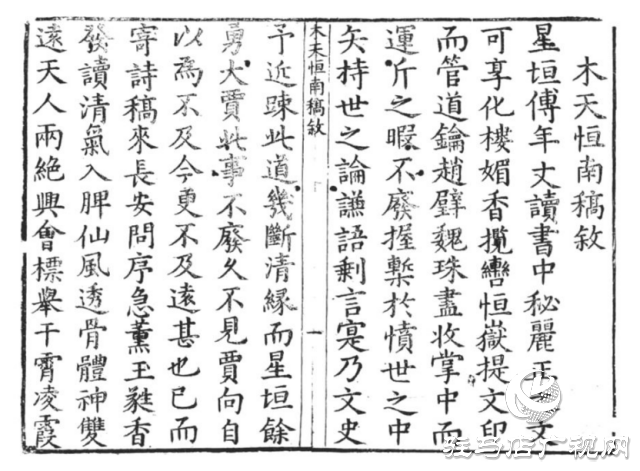 木天恒南稿敘
星垣傅年丈讀書中秘麗正文
可享化樓媚香攬轡恒嶽提文印
而管道鑰趙璧魏珠盡收掌中而
運斤之暇不廢握槧於憤世之中
矢持世之論讌語剩言寔乃文史
木天恒南稿敘
一
予近踈此道幾斷清緣而星垣餘
勇大賈此事不廢久不見賈向自
以為不及今更不及遠甚也已而
寄詩稿來長安問序急薰玉蕤香
發讀清氣入脾仙風透骨體神雙
遠天人兩絕興會標舉干霄凌霞
驻马店广视网